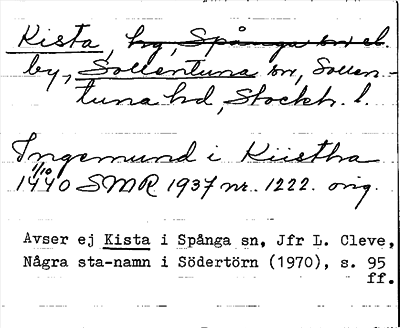 Kista, hg, Spånga sn el.
by, Sollentuna sn, Sollen-
tuna hd, Stockh. l.
Ingemund i Kiistha
1/10
1440 SMR 1937 nr. 1222. orig.
Avser ej Kista i Spånga sn, Jfr L. Cleve,
Några sta-namn i Södertörn (1970), s. 95
ff.